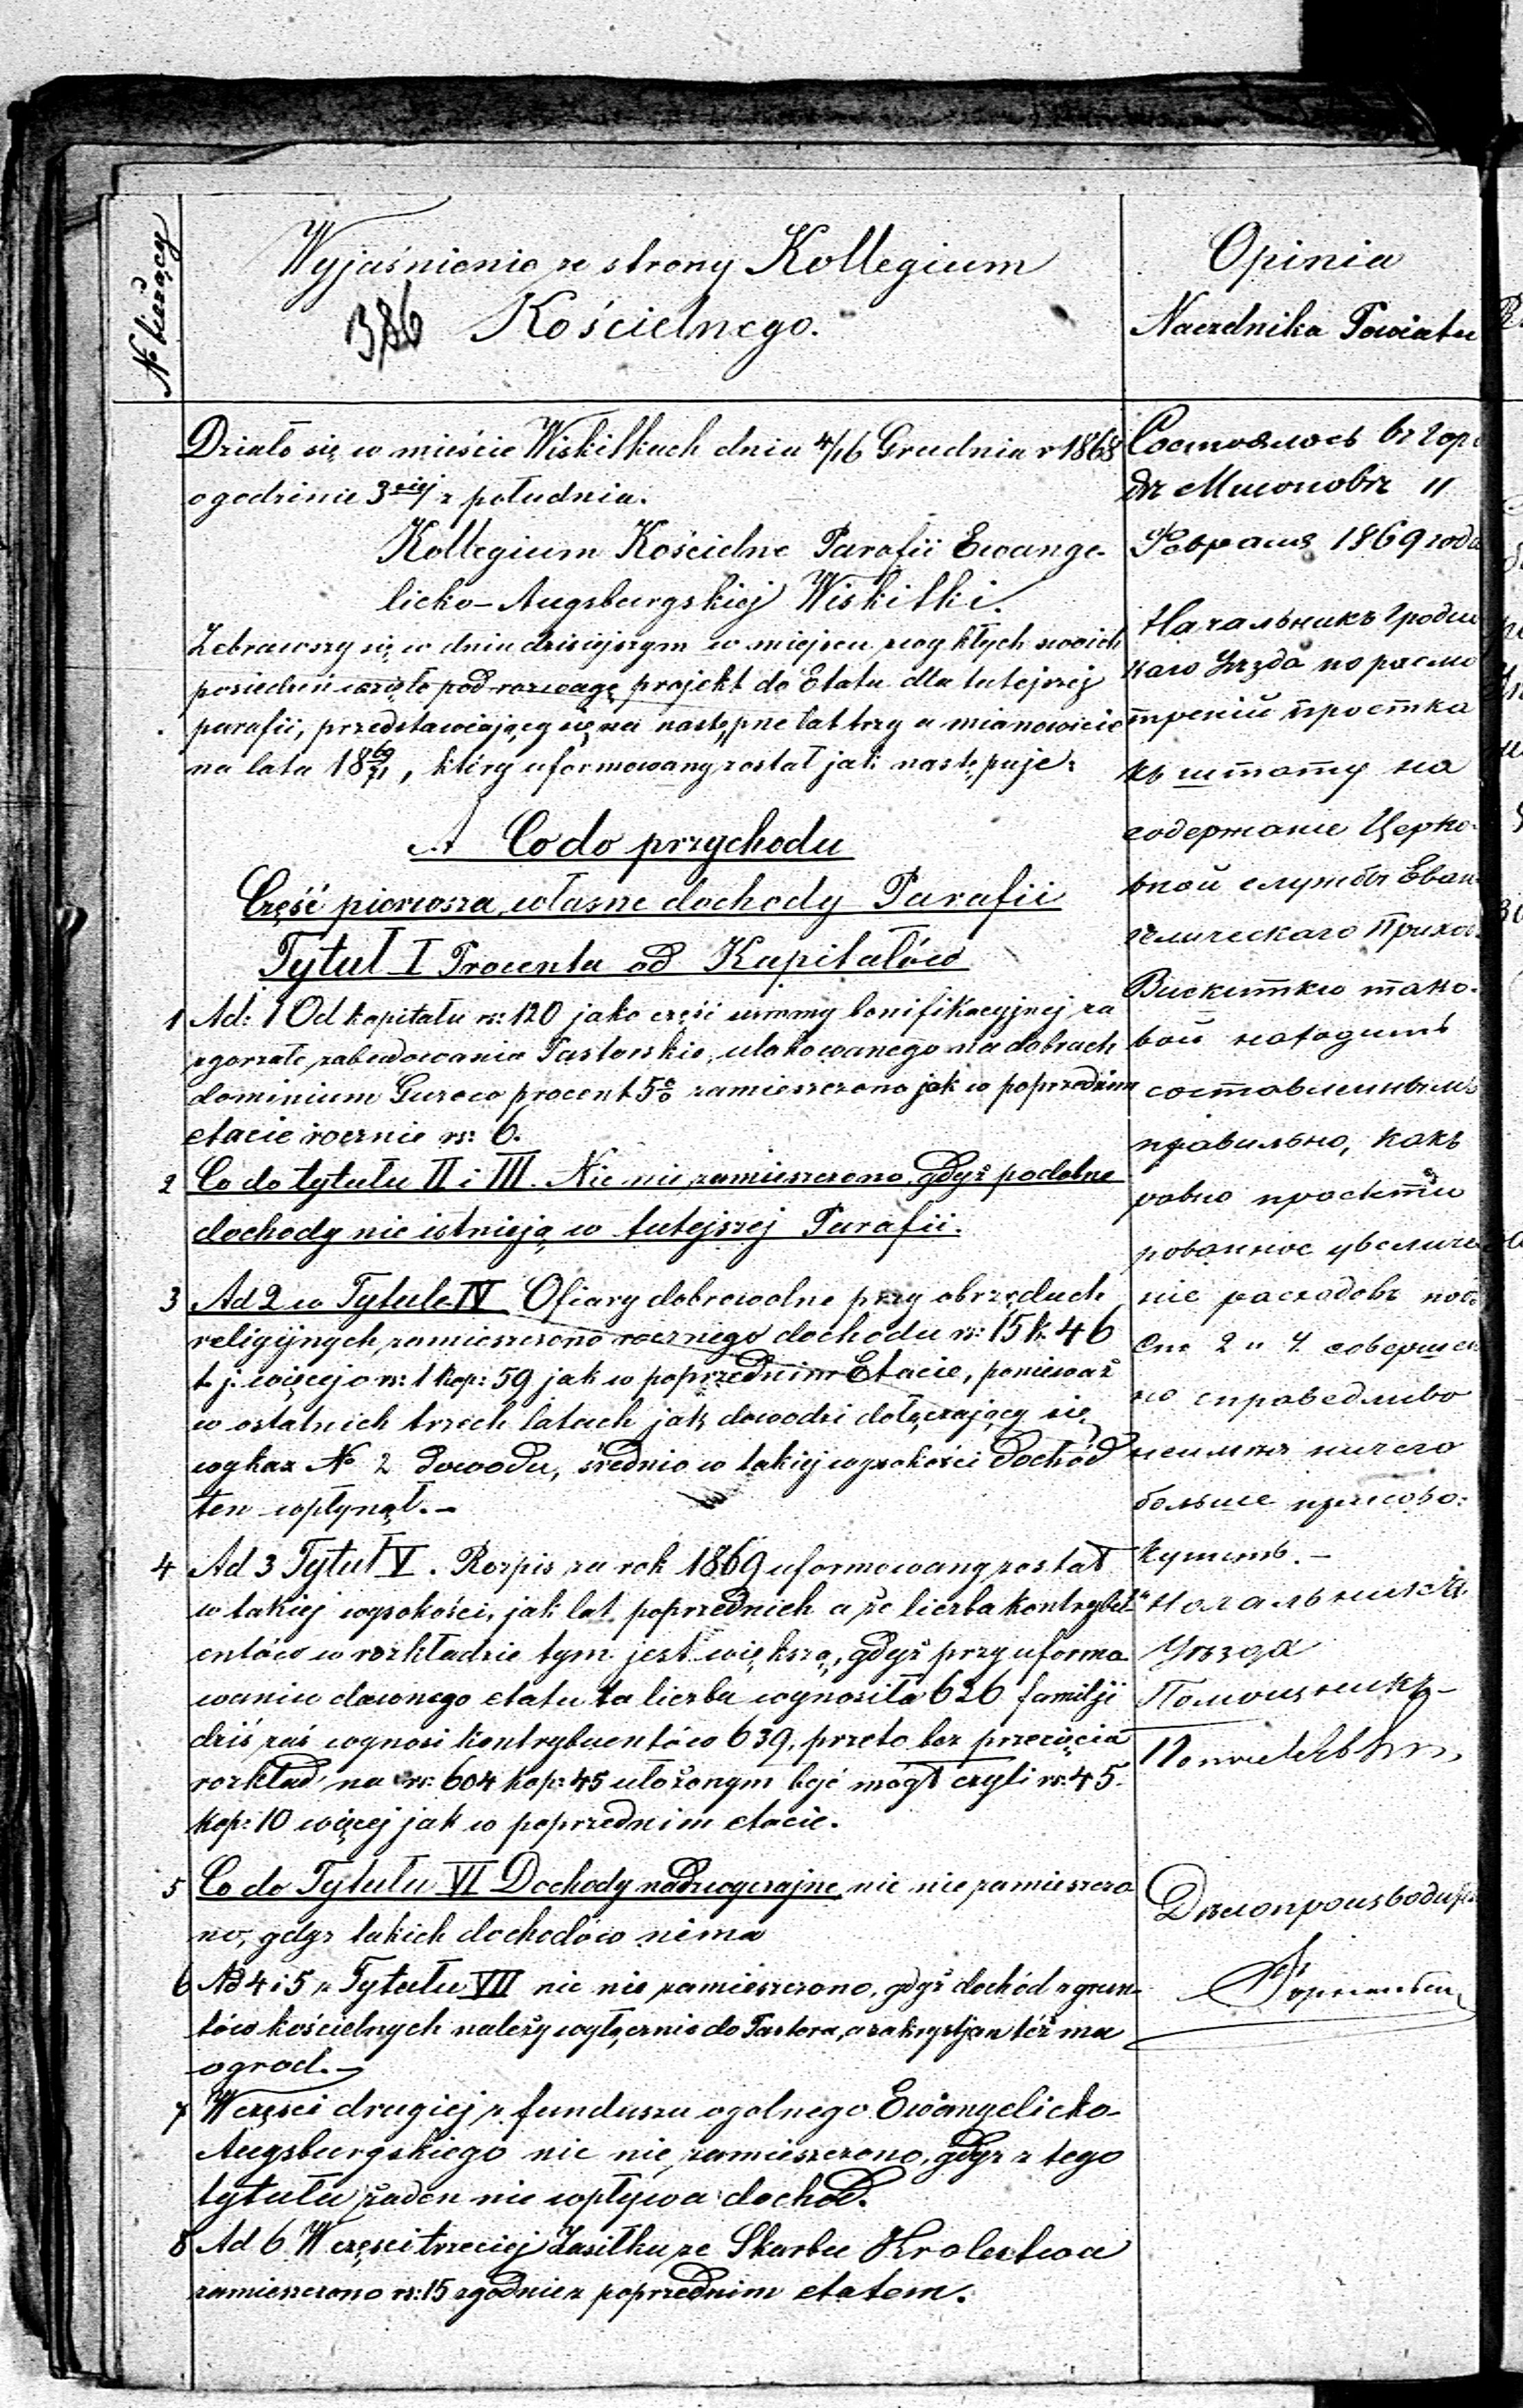 № bieżący
Wyjaśnienie ze strony Kollegium
386 Kościelnego.
Działo się w mieście Wiskitkach dnia 4/16 Grudnia r 1868
o godzinie 3ciej z południa.
Kollegium Kościelne Parafii Ewange-
licko-Augsburgskiej Wiskitki.
Zebrawszy się w dniu dzisiejszym w miejscu zwykłych swoich
posiedzeń wzięło pod rozwagę projekt do Etatu dla tutejszej
parafii, przedstawiający się na następne lat trzy a mianowicie
na lata 1869/71, który uformowany został jak następuje:
A Co do przychodu
Część pierwsza własne dochody Parafii
Tytuł I Procenta od Kapitałów
1 Ad: 1 Od kapitału rs: 120 jako część summy bonifikacyjnej za
zgorzałe zabudowania Pastorskie, ulokowanego na dobrach
dominium Guzow procent 5% zamieszczono jak w poprzednim
etacie rocznie rs: 6.
2 Co do tytułu II i III. Nic nie zamieszczono, gdyż podobne
dochody nie istnieją w tutejszej Parafii.
3 Ad 2 w Tytule IV Ofiary dobrowolne przy obrzędach
religijnych, zamieszczono rocznego dochodu rs: 15 k. 46
t. j. więcej o rs: 1 kop: 59 jak w poprzednim Etacie, ponieważ
w ostatnich trzech latach jak dowodzi dołączający się
wykaz № 2 dowodu, średnio w takiej wysokości dochód
ten wpłynął.-
4 Ad 3 Tytuł V. Rozpis za rok 1869 uformowany został
w takiej wysokości, jak lat poprzednich a że liczba kontrybu-
entów w rozkładzie tym jest większą, gdyż przy uformo-
waniu dawnego etatu ta liczba wynosiła 626 familji
dziś zaś wynosi kontrybuentów 639, przeto bez przecięcia
rozkład na rs: 604 kop: 45 ułożonym być mógł czyli rs: 45
kop: 10 więcej jak w poprzednim etacie.
5 Co do Tytułu VI Dochody nadzwyczajne, nic nie zamieszczo-
no, gdyż takich dochodów nima
6 Ad 4 i 5 z Tytułu VII nic nie zamieszczono, gdyż dochód z grun-
tów kościelnych należy wyłącznie do Pastora, a zakrystjan też ma
ogrod.-
7 W części drugiej z funduszu ogolnego Ewangelicko-
Augsburgskiego nic nie zamieszczono, gdyż z tego
tytułu żaden nie wpływa dochód.
8 Ad 6 W części trzeciej Zasiłku ze Skarbu Krolestwa
zamieszczono rs: 15 zgodnie z poprzednim etatem.
Opinia
Naczelnika Powiatu
Состоялось въ горо
дѣ Мшоновѣ 11
Февраля 1869 года
Начальникъ Гродис
каго Уѣзда по разсмо
трѣніи проэтка
къ штату на
содержаніе Церко-
вной службы Еван
гелическаго Прихо
Вискитки тако-
вой находитъ
составленнымъ
правильно, какъ
равно проэкти
рованное увеличе
ніе расходовъ по
Ст. 2 и 4 совершен
но справедливо
неимѣя ничего
больше присово:
купить.-
Начальника
Уѣзда
Помощникъ
Дѣлопроизводи